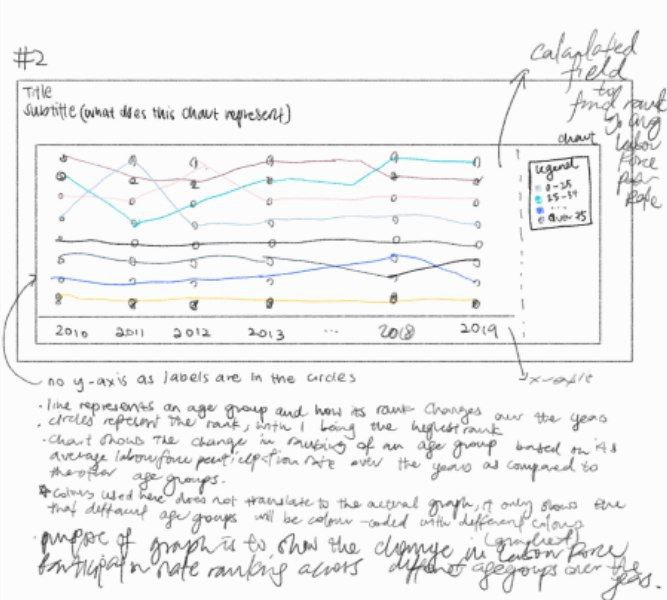 #2
calculated
field
to
find rank
by avg
labor
force
rate
Title
Subtitle (what does this chart represent)
chart
legend
0-25
25-34
....
over 75
1
2
3
4
5
6
7
8
2010 2011 2012 2013 ... 2018 2019
no y-axis as labels are in the circles
x-axis
· line represents an age group and how its rank changes over the years
· circles represent the rank, with 1 being the highest rank
· chart shows the change in ranking of an age group based on its
average labour force participation rate over the years as compared to
the other age groups.
* Colours used here does not translate to the actual graph, it only shows
that different age groups will be colour-coded with different colours
purpose of graph is to show the change in labor force
participation rate ranking across different age groups over the
years.